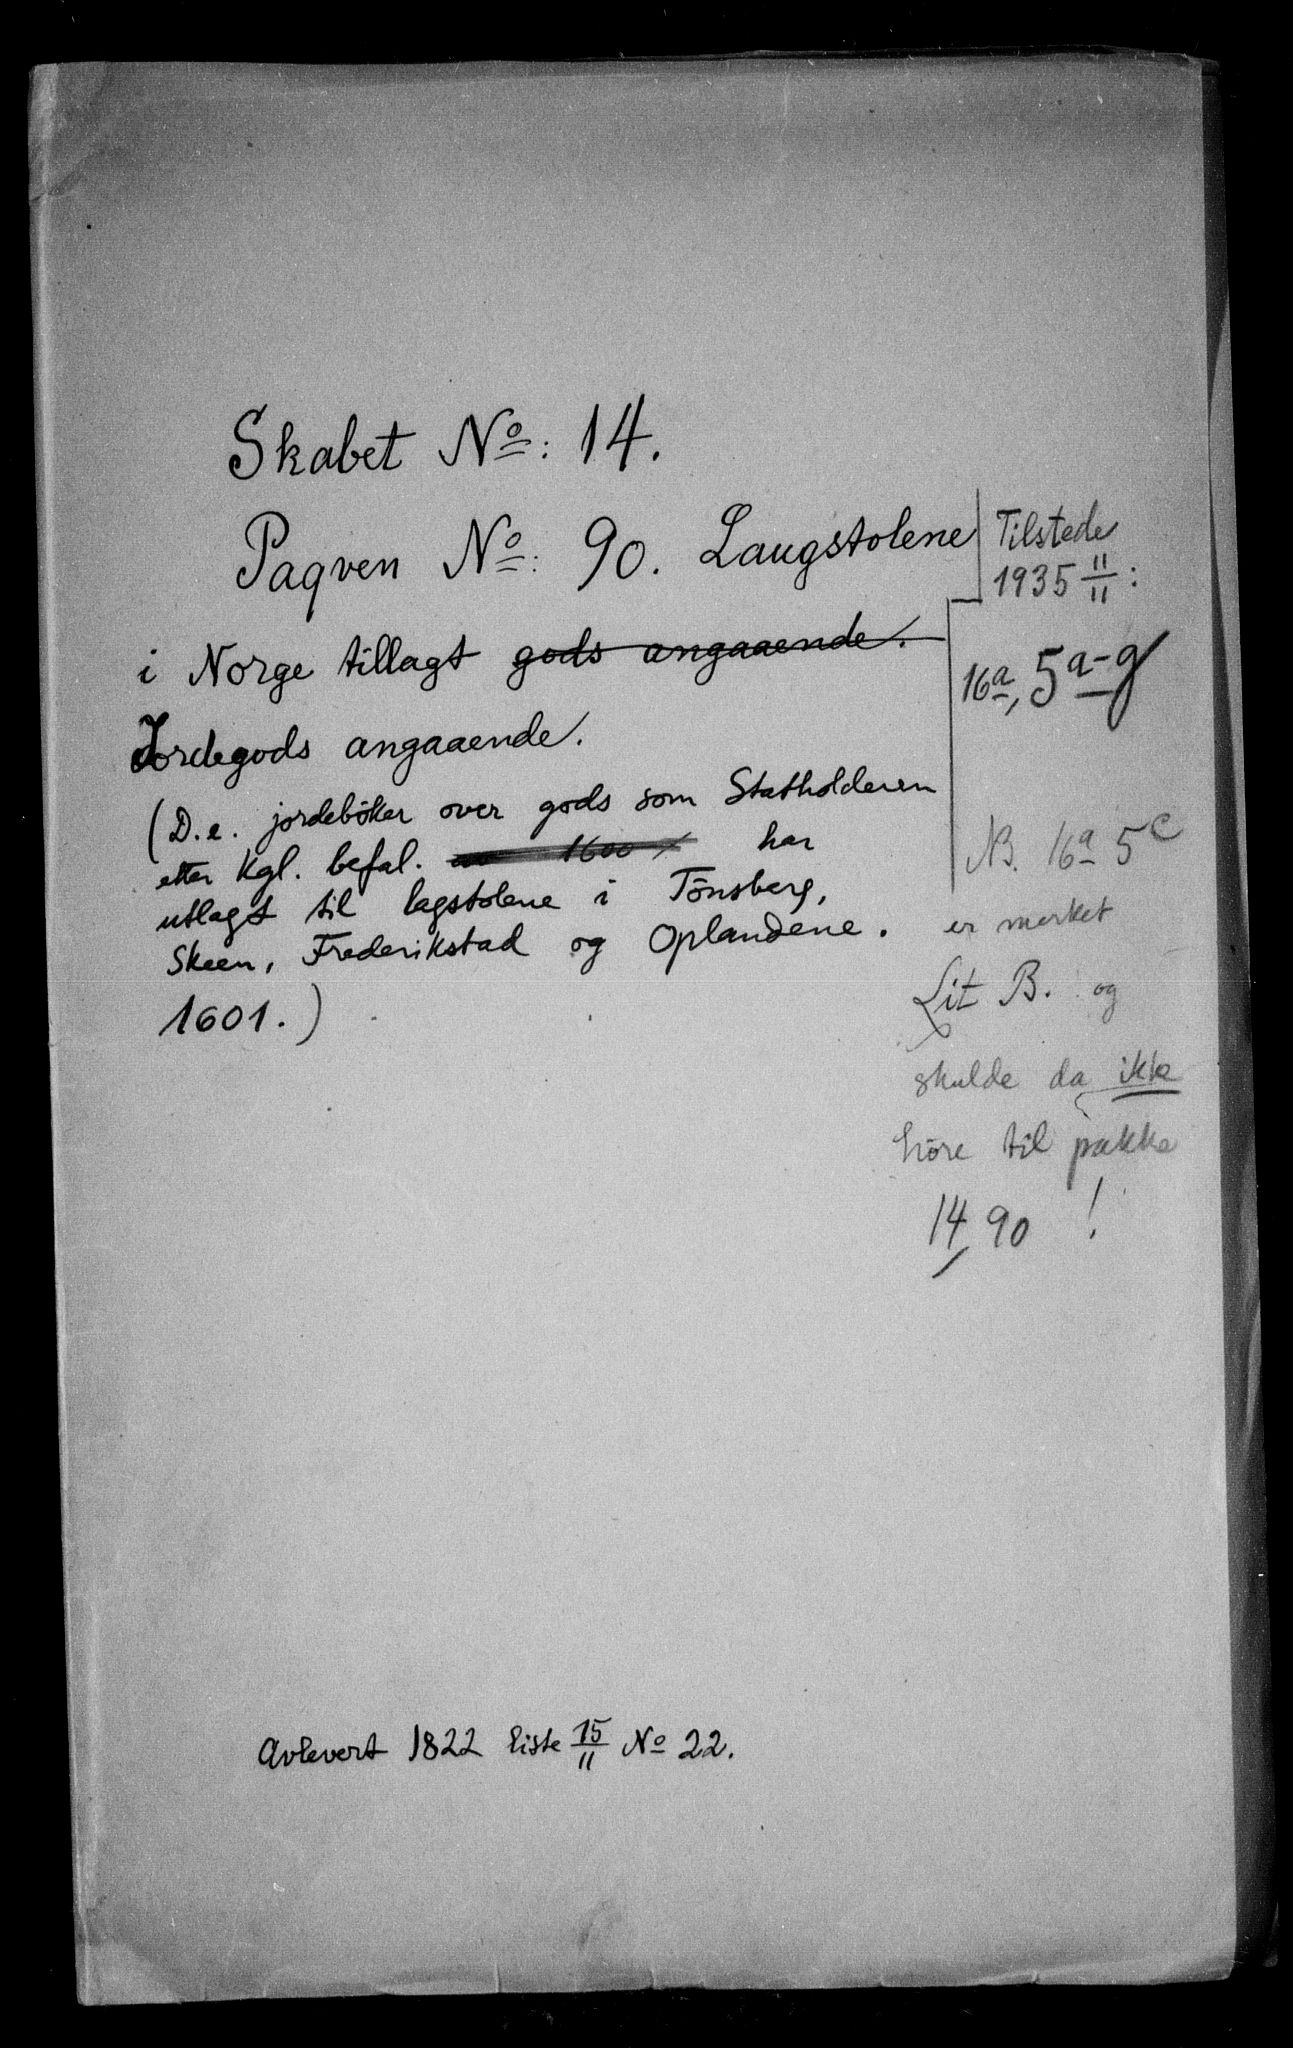 Skabet No: 14.
Paqven No: 90. Laugstolene
i Norge tillagt gods angaaende.
Jordegods angaaende.
(D.e. jordeböker over gods som Statholderen
etter Kgl. befal. 1600 har
utlagt til lagstolene i Tönsberg,
Skeen, Frederikstad og Oplandene.
1601.)
Tilstede
1935 11/11:
16a, 5a-g
NB. 16a 5c
er merket
Lit B. og
skulde da ikke
höre til pakke
14, 90 !
Avlevert 1822 liste 15/11 No 22.